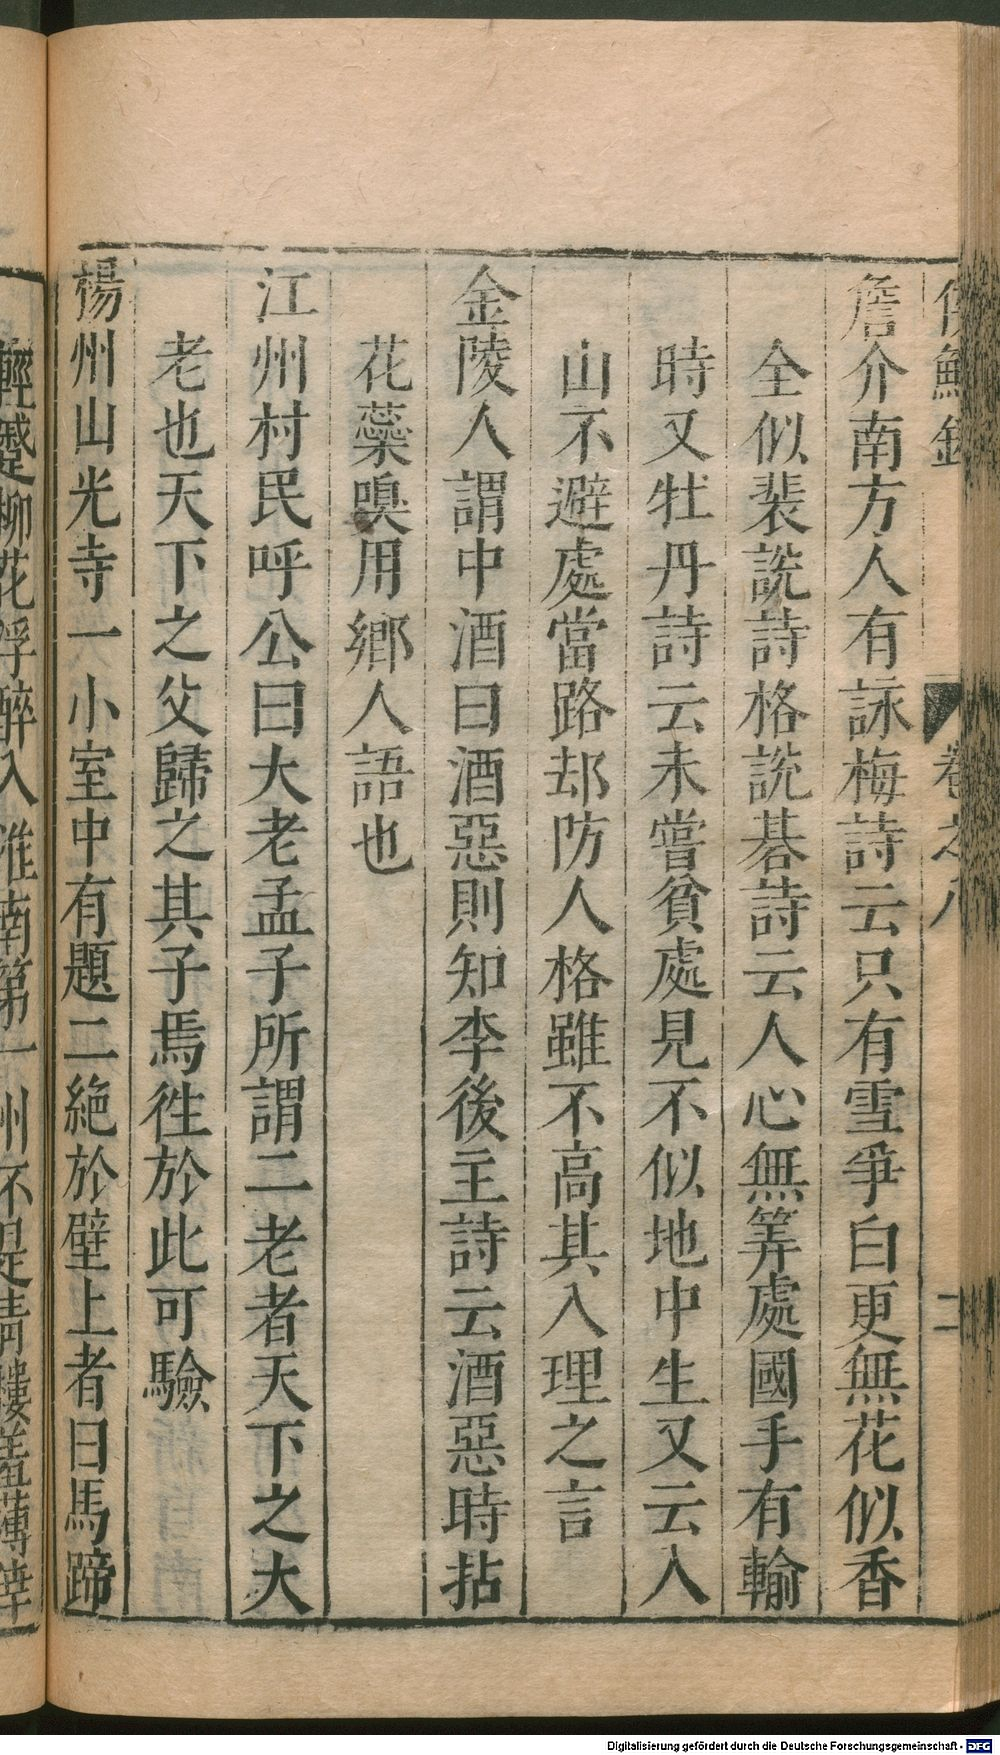 侯鯖錄 卷之八 二
詹介南方人有詠梅詩云只有雪爭白更無花似香
全似裴說詩格說碁詩云人心無筭處國手有輸
時又牡丹詩云未嘗貧處見不似地中生又云入
山不避處當路却防人格雖不高其入理之言
金陵人謂中酒曰酒惡則知李後主詩云酒惡時拈
花蘂嗅用鄉人語也
江州村民呼公曰大老孟子所謂二老者天下之大
老也天下之父歸之其子焉徃於此可驗
楊州山光寺一小室中有題二絶於壁上者曰馬蹄
輕蹙柳花浮醉入淮南第一州不是青樓羞薄倖
Digitalisierung gefördert durch die Deutsche Forschungsgemeinschaft - DFG